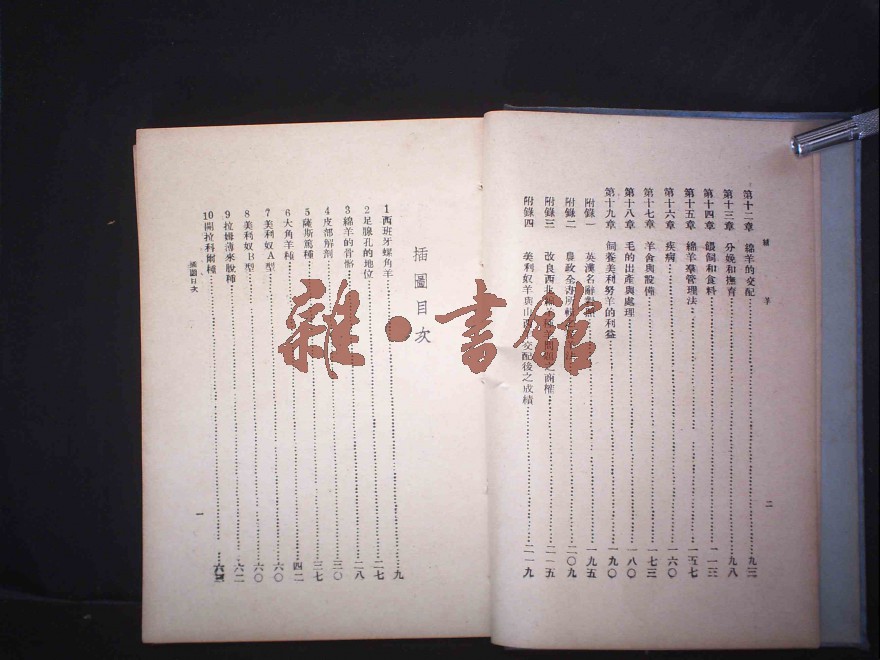 綿羊
第十二章 綿羊的交配 九三
第十三章 分娩和撫育 九八
第十四章 餵飼和食料 一一三
第十五章 綿羊羣管理法 一五七
第十六章 疾病 一六〇
第十七章 羊舍與設備 一七三
第十八章 毛的出產與處理 一八〇
第十九章 飼養美利努羊的利益 一九〇
附錄一 英漢名辭對照 一九五
附錄二 農政全書所載 二〇九
附錄三 改良西北 之商榷 二一五
附錄四 美利奴羊與山西 交配後之成績 二一九
二
插圖目次
1 西班牙螺角羊 九
2 足腺孔的地位 二七
3 綿羊的骨骼 二八
4 皮部解剖 三〇
5 薩斯篤種 三七
6 大角羊種 四二
7 美利奴A型 六〇
8 美利奴B型 六〇
9 拉姆薄來脫種 六二
10 開拉科爾種
插圖目次
一
雜·書館